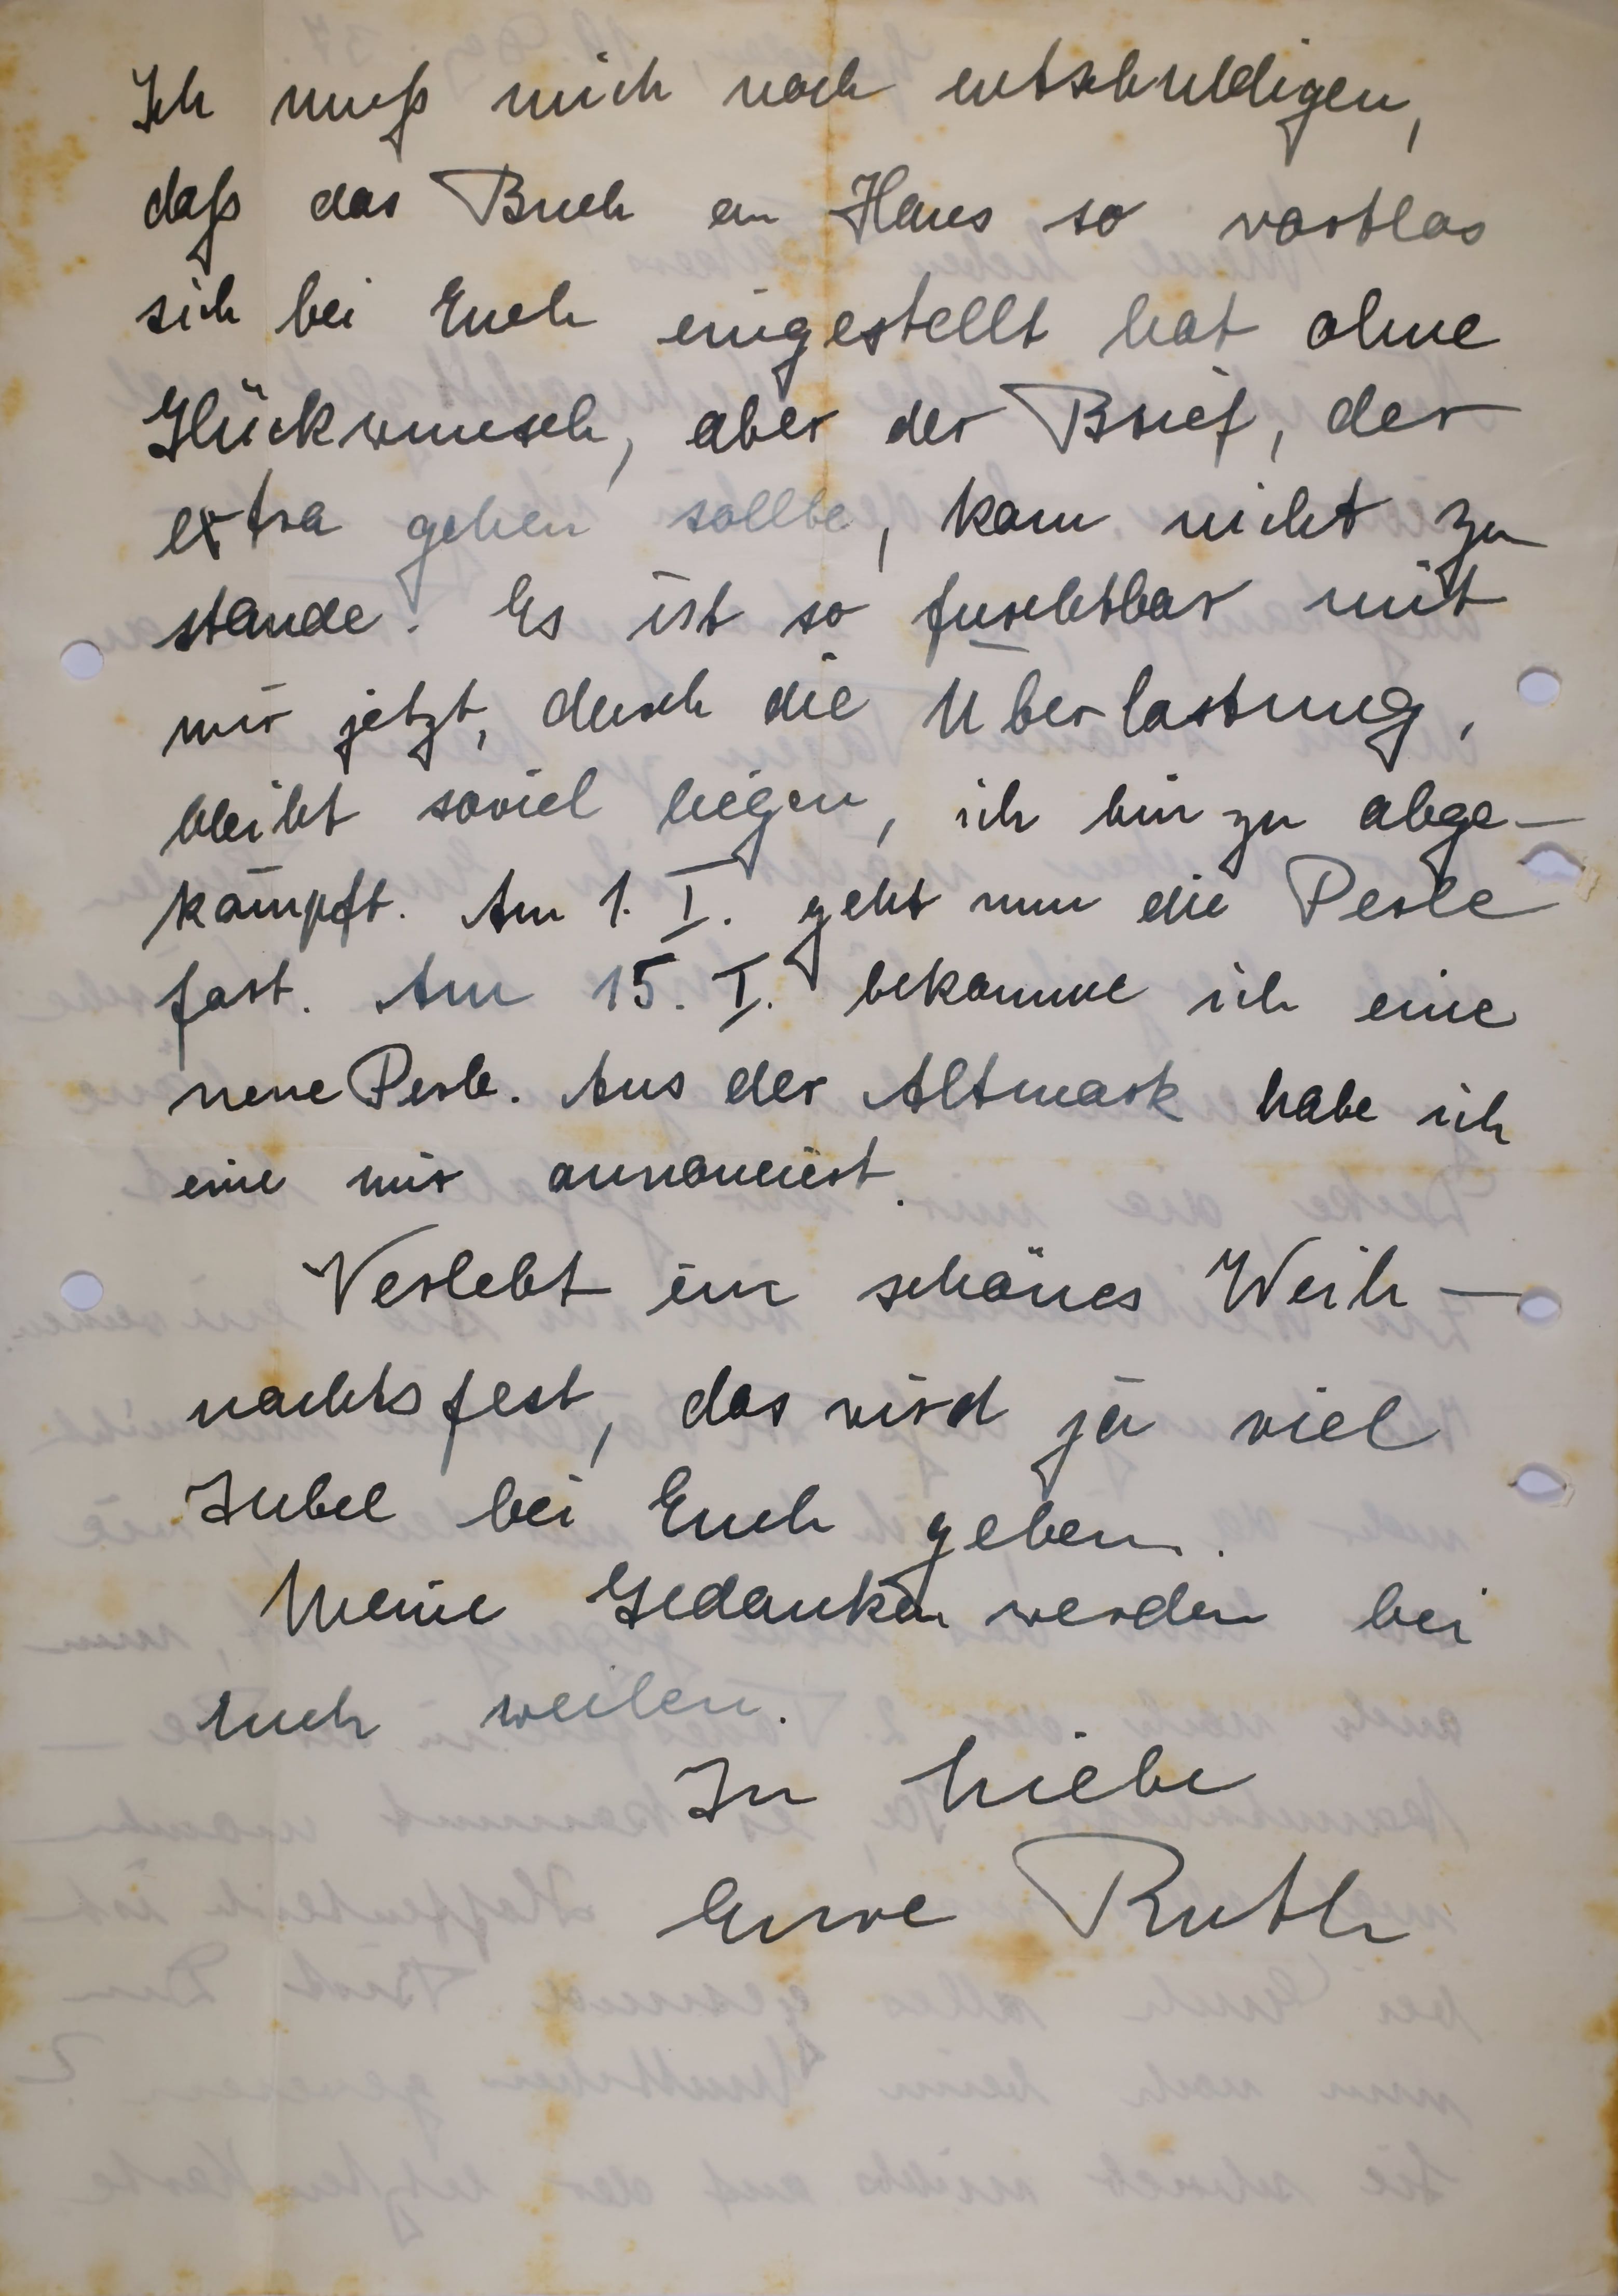 Ich muß mich noch entschuldigen,
daß das Buch an Hans so wortlos
sich bei Euch eingestellt hat ohne
Glückwunsch, aber der Brief, der
extra gehen sollte, kam nicht zu
stande. Es ist so furchtbar mit
mir jetzt, durch die Überlastung,
bleibt soviel liegen, ich bin zu abge-
kämpft. Am 1. I. geht nun die Perle
fort. Am 15. I. bekomme ich eine
neue Perle. Aus der Altmark habe ich
eine mir annonciert.
Verlebt ein schönes Weih-
nachtsfest, das wird ja viel
Jubel bei Euch geben.
Meine Gedanken werden bei
Euch weilen.
In Liebe
Eure Ruth